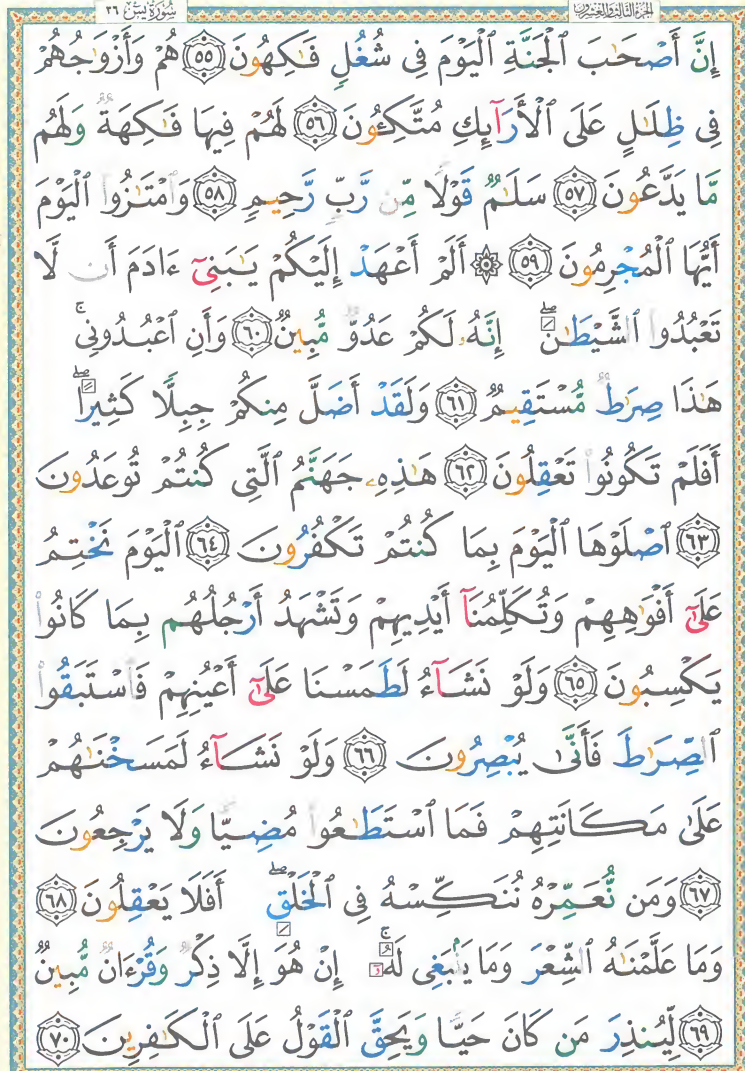 سُورَةُ يسٓ ٣٦ الجزء الثالث والعشرون
إِنَّ أَصْحَٰبَ ٱلْجَنَّةِ ٱلْيَوْمَ فِى شُغُلٍ فَٰكِهُونَ ٥٥ هُمْ وَأَزْوَٰجُهُمْ
فِى ظِلَٰلٍ عَلَى ٱلْأَرَآئِكِ مُتَّكِـُٔونَ ٥٦ لَهُمْ فِيهَا فَٰكِهَةٌ وَلَهُم
مَّا يَدَّعُونَ ٥٧ سَلَٰمٌ قَوْلًا مِّن رَّبٍّ رَّحِيمٍ ٥٨ وَٱمْتَٰزُوا۟ ٱلْيَوْمَ
أَيُّهَا ٱلْمُجْرِمُونَ ٥٩ ۞ أَلَمْ أَعْهَدْ إِلَيْكُمْ يَٰبَنِىٓ ءَادَمَ أَن لَّا
تَعْبُدُوا۟ ٱلشَّيْطَٰنَ ۖ إِنَّهُۥ لَكُمْ عَدُوٌّ مُّبِينٌ ٦٠ وَأَنِ ٱعْبُدُونِى ۚ
هَٰذَا صِرَٰطٌ مُّسْتَقِيمٌ ٦١ وَلَقَدْ أَضَلَّ مِنكُمْ جِبِلًّا كَثِيرًا ۖ
أَفَلَمْ تَكُونُوا۟ تَعْقِلُونَ ٦٢ هَٰذِهِۦ جَهَنَّمُ ٱلَّتِى كُنتُمْ تُوعَدُونَ
٦٣ ٱصْلَوْهَا ٱلْيَوْمَ بِمَا كُنتُمْ تَكْفُرُونَ ٦٤ ٱلْيَوْمَ نَخْتِمُ
عَلَىٰٓ أَفْوَٰهِهِمْ وَتُكَلِّمُنَآ أَيْدِيهِمْ وَتَشْهَدُ أَرْجُلُهُم بِمَا كَانُوا۟
يَكْسِبُونَ ٦٥ وَلَوْ نَشَآءُ لَطَمَسْنَا عَلَىٰٓ أَعْيُنِهِمْ فَٱسْتَبَقُوا۟
ٱلصِّرَٰطَ فَأَنَّىٰ يُبْصِرُونَ ٦٦ وَلَوْ نَشَآءُ لَمَسَخْنَٰهُمْ
عَلَىٰ مَكَانَتِهِمْ فَمَا ٱسْتَطَٰعُوا۟ مُضِيًّا وَلَا يَرْجِعُونَ
٦٧ وَمَن نُّعَمِّرْهُ نُنَكِّسْهُ فِى ٱلْخَلْقِ ۖ أَفَلَا يَعْقِلُونَ ٦٨
وَمَا عَلَّمْنَٰهُ ٱلشِّعْرَ وَمَا يَنۢبَغِى لَهُۥٓ ۚ إِنْ هُوَ إِلَّا ذِكْرٌ وَقُرْءَانٌ مُّبِينٌ
٦٩ لِّيُنذِرَ مَن كَانَ حَيًّا وَيَحِقَّ ٱلْقَوْلُ عَلَى ٱلْكَٰفِرِينَ ٧٠